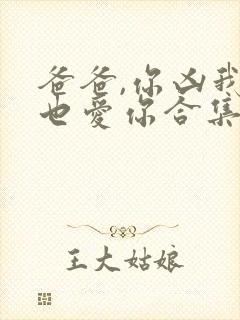 爸爸,你凶我
也爱你合集
王大姑娘